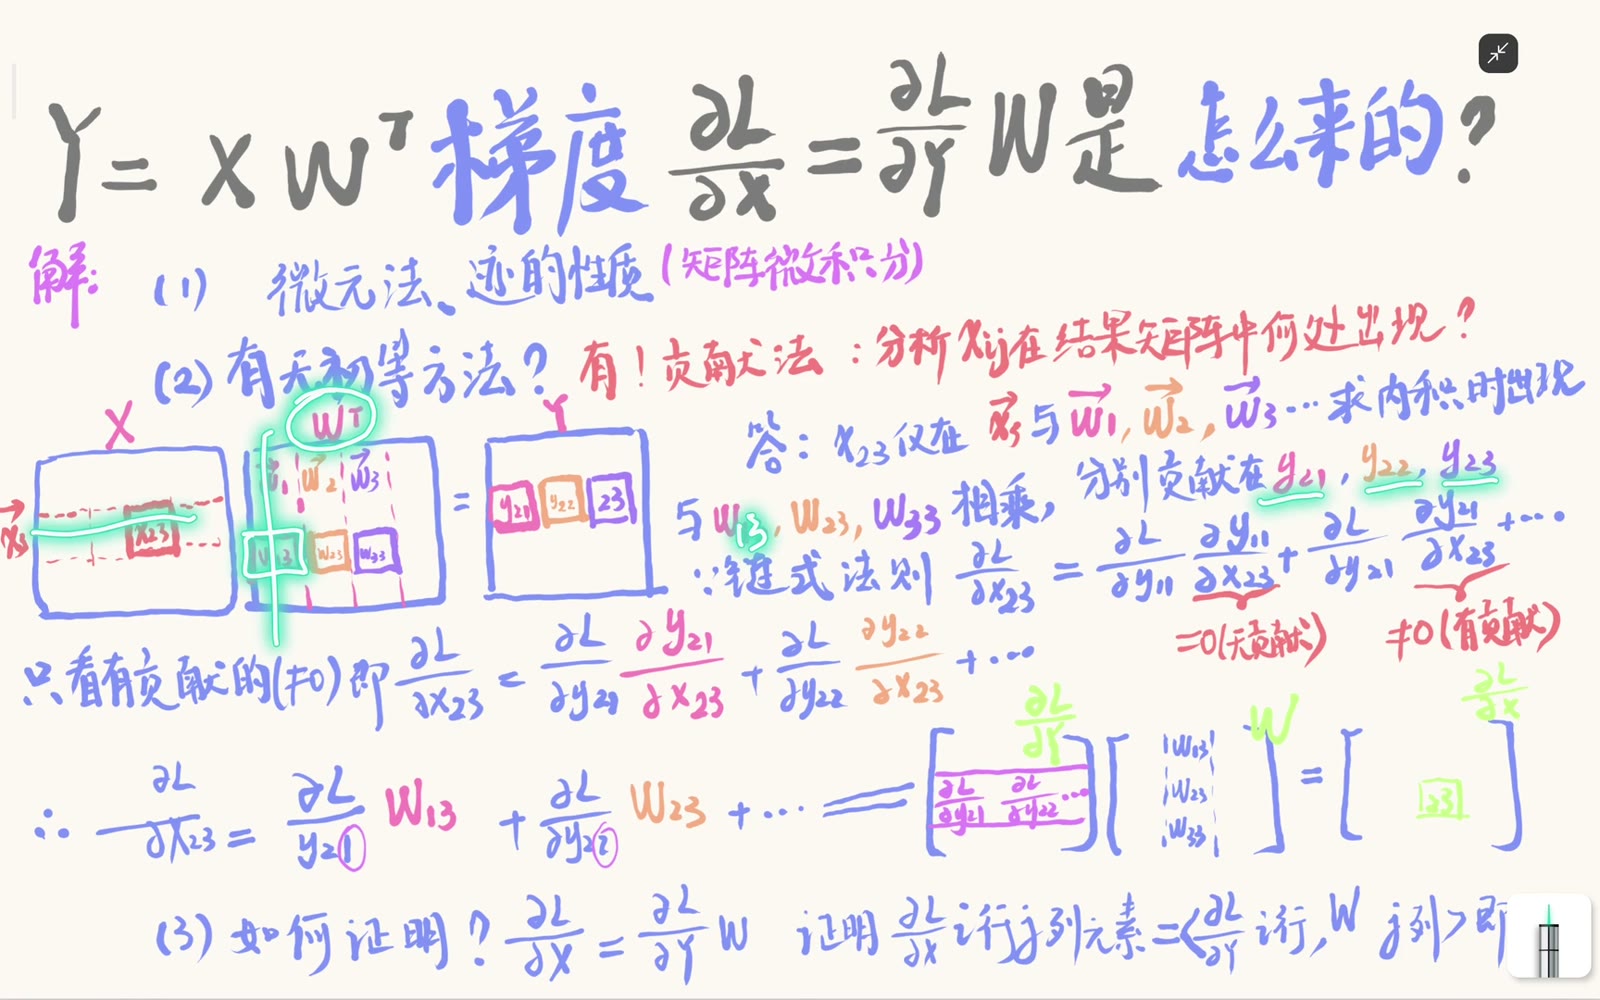 Y = X Wᵀ 梯度 ∂L/∂X = ∂L/∂Y W 是 怎么来的?
解: (1) 微元法、迹的性质 (矩阵微积分)
(2) 有无初等方法? 有! 贡献法 : 分析 Xij 在结果矩阵中何处出现?
X Wᵀ Y
答: X23 仅在 与 W1, W2, W3 … 求内积时出现
W2 W3
X23 W23 W33 = y21 y22 23
与 W13, W23, W33 相乘, 分别贡献在 y21, y22, y23
∵ 链式法则 ∂L/∂X23 = ∂L/∂y11 ∂y11/∂X23 + ∂L/∂y21 ∂y21/∂X23 + …
=0(无贡献) ≠0(有贡献)
只看有贡献的(≠0) 即 ∂L/∂X23 = ∂L/∂y21 ∂y21/∂X23 + ∂L/∂y22 ∂y22/∂X23 + …
∂L/∂Y W ∂L/∂X
∴ ∂L/∂X23 = ∂L/y21 W13 + ∂L/∂y22 W23 + … = [∂L/∂y21 ∂L/∂y22 …] [W13 W23 W33] = [23]
(3) 如何证明? ∂L/∂X = ∂L/∂Y W 证明 ∂L/∂X i行j列元素 = <∂L/∂Y i行, W j列> 即